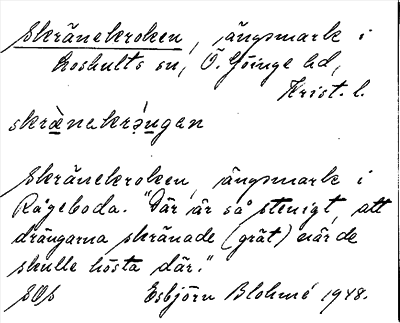 Skränekroken, ängsmark i
Loshults sn, Ö. Göinge hd,
Krist. l.
skrænekrɔ̀ugan
Skränekroken, ängsmark i
Rågeboda. "Där är så stenigt, att
drängarna skränade (grät) när de
skulle hösta där."
SOS Esbjörn Blohmé 1948.